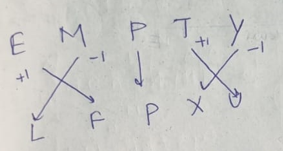 E M P T Y
+1 -1 +1 -1
L F P X U